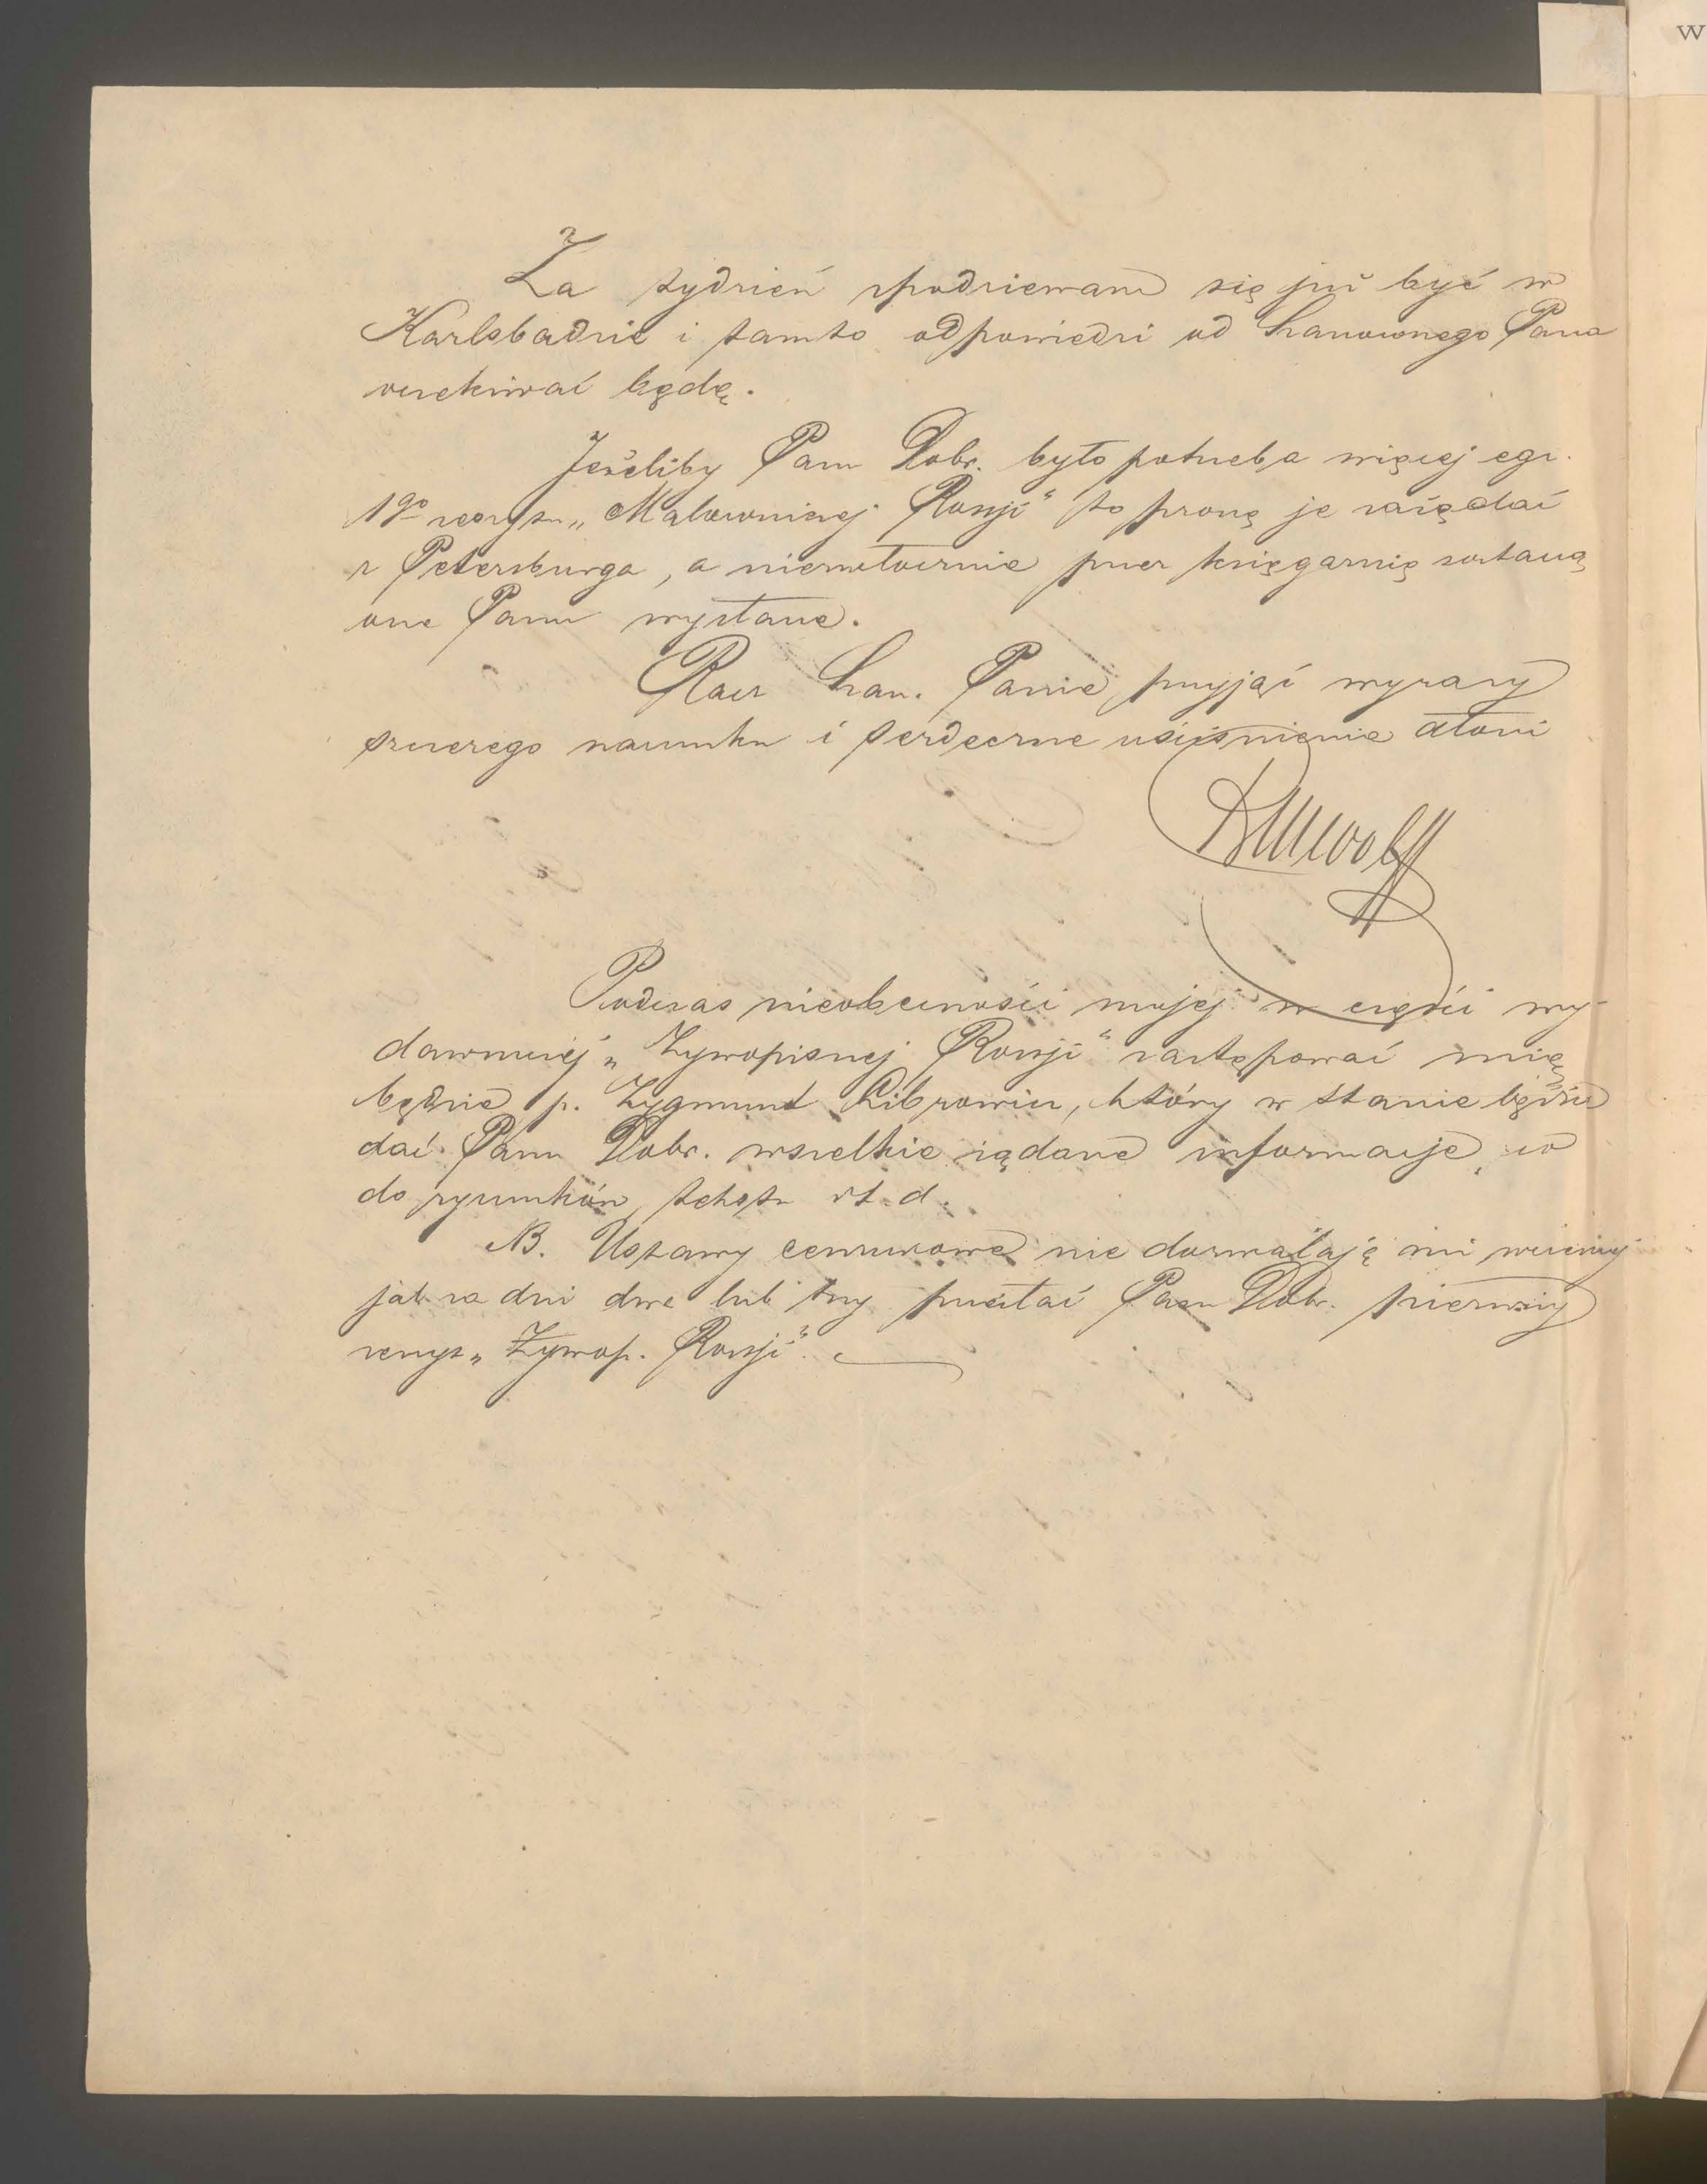 Za tydzień spodziewam się już być w
Karlsbadzie i tamto odpowiedzi od Szanownego Pana
oczekiwać będę.
Jeżeliby Panu Dobr. było potrzeba więcej egz.
1go zeszytu „Malowniczej Rossji" to proszę je zażądać
z Petersburga, a niezwłocznie przez księgarnię zostaną
one Panu wysłane.
Racz Szan. Panie przyjąć wyrazy
szczerego szacunku i serdeczne uściśnienie dłoni
MWolff
Podczas nieobecności mojej w części wy-
dawniczej „Żywopisnej Rossji" zastępować mię
będzie p. Zygmunt Librowicz, który w stanie będzie
dać Panu Dobr. wszelkie żądane informacje, co
do rysunków, tekstu it.d.
NB. Ustawy cenzurowe nie dozwalają mi wcześniej
jak za dni dwa lub trzy przesłać Panu Dobr. pierwszy
zeszyt „Żywop. Rossji".
W